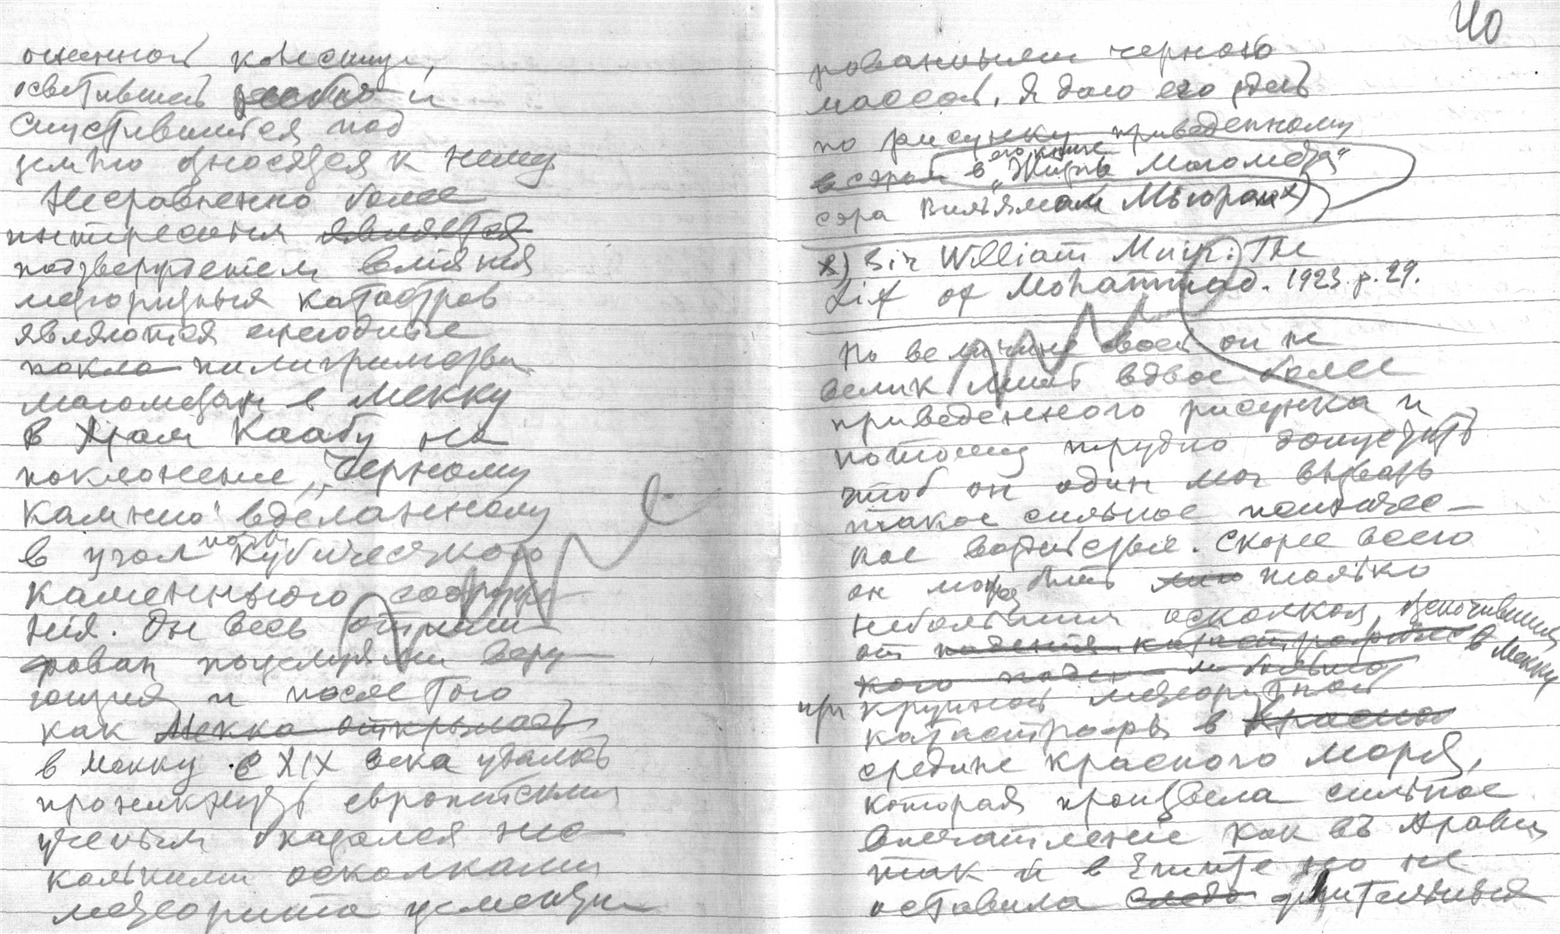 освѣтившей и
спустившейся под
землю относятся к нему
Несравненно более
интересным является
подтверждением влияния
метеоритных катастроф
являются ежегодные
покло пилигримства
магометан в Мекку
в Храм Каабу на
поклонение „Черному
камню" вделанному
в угол почти кубического
каменного
ния. Он весь
рован поцелуями веру
ющих и после того
как Мекка открылась
в Мекку в XIX века удалось
проникнуть европейским
ученым оказался не
колькими осколками
метеорита
40
рованными черною
массой. Я даю его здесь
по рисунку приведенному
в его книге „Жизнь Магомета"
сэра Вильямом Мьюром x)
x) Sir William Muir: The
Life of Mohammad. 1923 p. 29.
По величине своей он не
велик лишь вдвое более
приведенного рисунка и
потому трудно допустить
чтоб он один мог вызвать
такое сильное
кое Скорее всего
он может быть только
небольшим осколком, отскочившим
в Мекку
от падения катастрофиче
кого паден
при крупной метеоритной
катастрофы в Красно
средине Красного моря,
которая произвела сильное
впечатление как въ Аравии
так и в Египте но не
оставила следо длительных